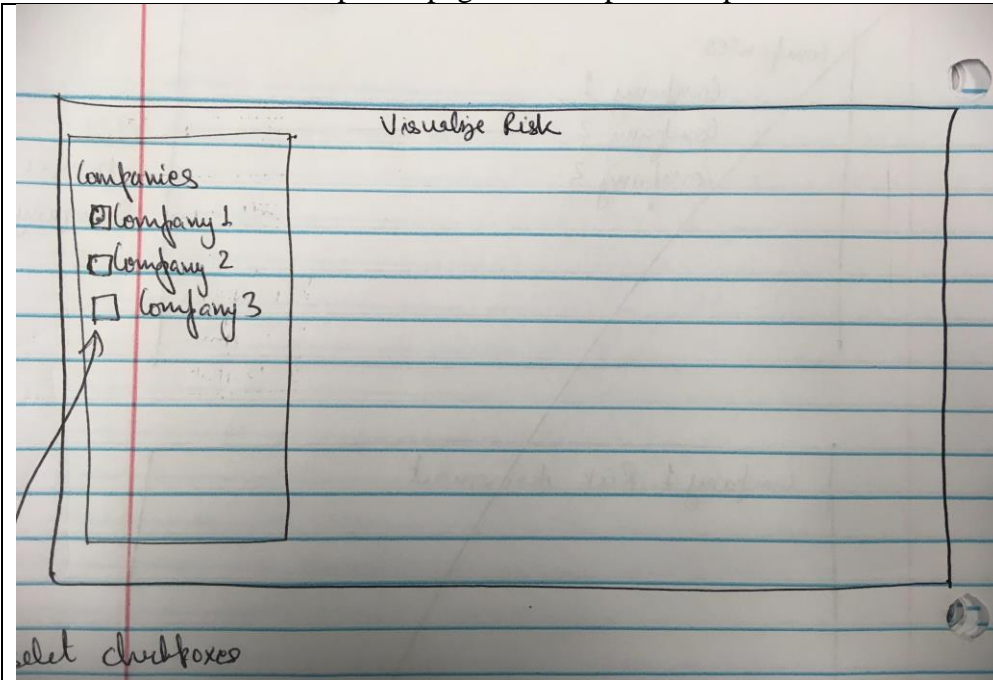 Visualize Risk
Companies
Company 1
Company 2
Company 3
select checkboxes